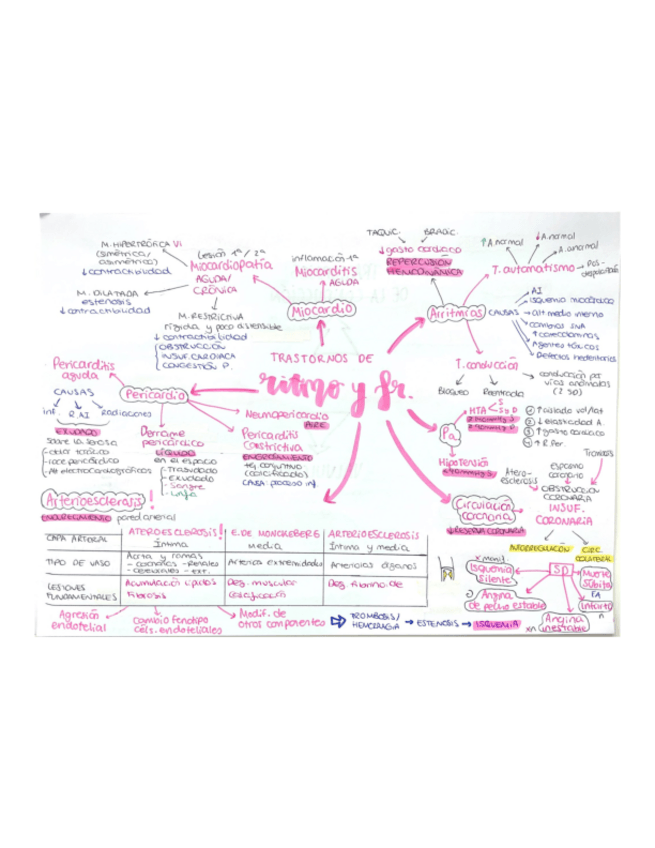 TRASTORNOS DE
ritmo y fr.
Miocardio
Miocarditis
AGUDA
inflamación 1ª
Lesión 1ª / 2ª
Miocardiopatía
AGUDA/
CRÓNICA
M. HIPERTRÓFICA VI
(simétrica/
asimétrica)
↓ contractibilidad
M. DILATADA
estenosis
↓ contractibilidad
M. RESTRICTIVA
rígida y poco distensible
↓ contractibilidad
OBSTRUCCIÓN
INSUF. CARDIACA
CONGESTIÓN P.
Pericardio
Pericarditis
aguda
CAUSAS
inf.
R. AI
Radiaciones
EXUDADO
sobre la serosa
- dolor torácico
- roce pericárdico
- Alt electrocardiográficas
Derrame
pericárdico
LÍQUIDO
en el espacio
- Trasudado
- Exudado
- Sangre
- Linfa
Neumopericardio
AIRE
Pericarditis
Constrictiva
ENGROSAMIENTO
tej. conjuntivo
(calcificado)
CAUSA: proceso inf.
Arritmias
TAQUIC.
BRADIC.
↓ gasto cardiaco
REPERCUSIÓN
HEMODINÁMICA
T. automatismo
↑ A. normal
↓ A. normal
A. anormal
Pos-
CAUSAS
AI
Isquemia miocárdico
alt medio interno
cambios SNA
↑ catecolaminas
Agentes tóxicos
Defectos hereditarios
T. conducción
Bloqueo
Reentrada
conducción por
vías anómalas
Pa
HTA
S
D
① ↑
② ↓ elasticidad A.
③ ↑ gasto cardiaco
④ ↑ R. Per.
Hipotensión
Circulación
coronaria
↓ RESERVA CORONARIA
Atero-
esclerosis
Espasmo
coronario
Trombosis
OBSTRUCCIÓN
CORONARIA
INSUF.
CORONARIA
AUTORREGULACIÓN
CIRC.
COLATERAL
SD
Isquemia
silente
Angina
de pecho estable
Angina
inestable
Muerte
súbita
EA
Infarto
Arterioesclerosis!
ENDURECIMIENTO pared arterial
CAPA ARTERIAL | ATEROESCLEROSIS! Íntima | E. DE MONCKEBERG media | ARTERIOESCLEROSIS Íntima y media
TIPO DE VASO | Aorta y ramas - coronarias - Renales - cerebrales - ext. | Arterias extremidades | Arteriolas órganos
LESIONES FUNDAMENTALES | Acumulación lípidos Fibrosis | Deg. muscular Calcificación | Deg. fibrinoide
Agresión
endotelial
Cambio fenotipo
céls. endoteliales
Modif. de
otros componentes
TROMBOSIS/
HEMORRAGIA → ESTENOSIS → ISQUEMIA